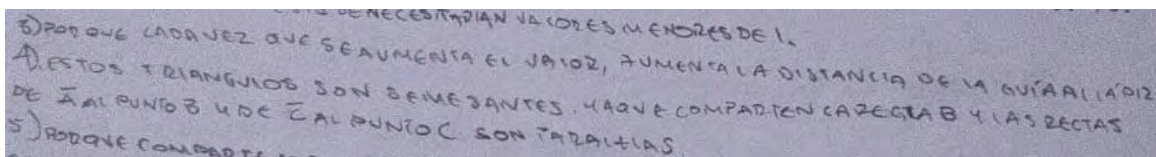 NECESITARIAN VALORES MENORES DE 1.
3) PORQUE CADA VEZ QUE SE AUMENTA EL VALOR, AUMENTA LA DISTANCIA DE LA GUÍA AL LAPIZ
4) ESTOS TRIANGULOS SON SEMEJANTES. YA QUE COMPARTEN LA RECTA B Y LAS RECTAS
DE A AL PUNTO B Y DE C AL PUNTO C SON PARALELAS
5) PORQUE